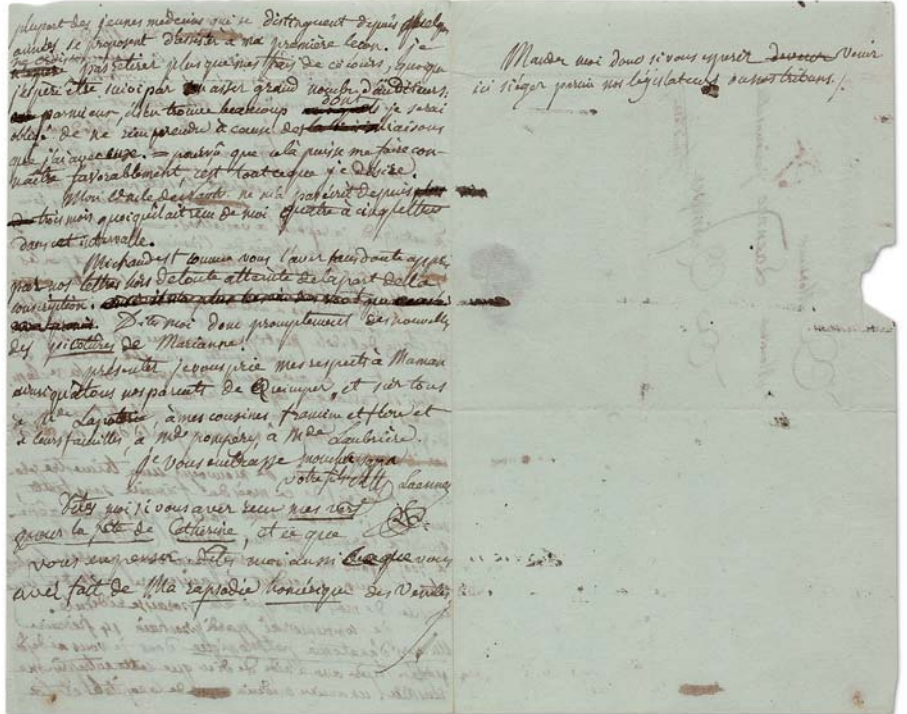 plupart des jeunes medecins qui se distinguent depuis quelques
années se proposent d'assister a ma première leçon. je
pas retirer plus que mes frais de ce cours, quoique
j'espere être suivi par un assez grand nombre d'auditeurs:
parmi eux, il s'en trouve beaucoup dont je serai
obligé de ne rien prendre à cause des liaisons
que j'ai avec eux. = pourvu que celà puisse me faire con-
naître favorablement, c'est tout ce que je desire.
Mon oncle de nantes ne m'a pas écrit depuis
trois mois quoiqu'il ait reçu de moi quatre à cinq lettres
dans cet intervalle.
Michaud est comme vous l'avez sans doute appris
par nos lettres hors de toute atteinte de la part de la
conscription.
Dites moi donc promptement des nouvelles
des picotures de Marianne.
présentez je vous prie mes respects à Maman
ainsi qu'à tous nos parents de Quimper, et sur tous
à Mde Lapoterie, à mes cousines et flore et
à leurs familles, à Mde pompery à Mde Laubrière.
je vous embrasse
votre fils Laennec
Dites moi si vous avez reçu mes vers
pour la fête de Catherine, et ce que
vous en pensez. dites moi aussi ce que vous
avez fait de Ma rapsodie homérique des Vénètes
Mandez moi donc si vous esperez venir
ici siéger parmi nos législateurs ou nos tribuns.